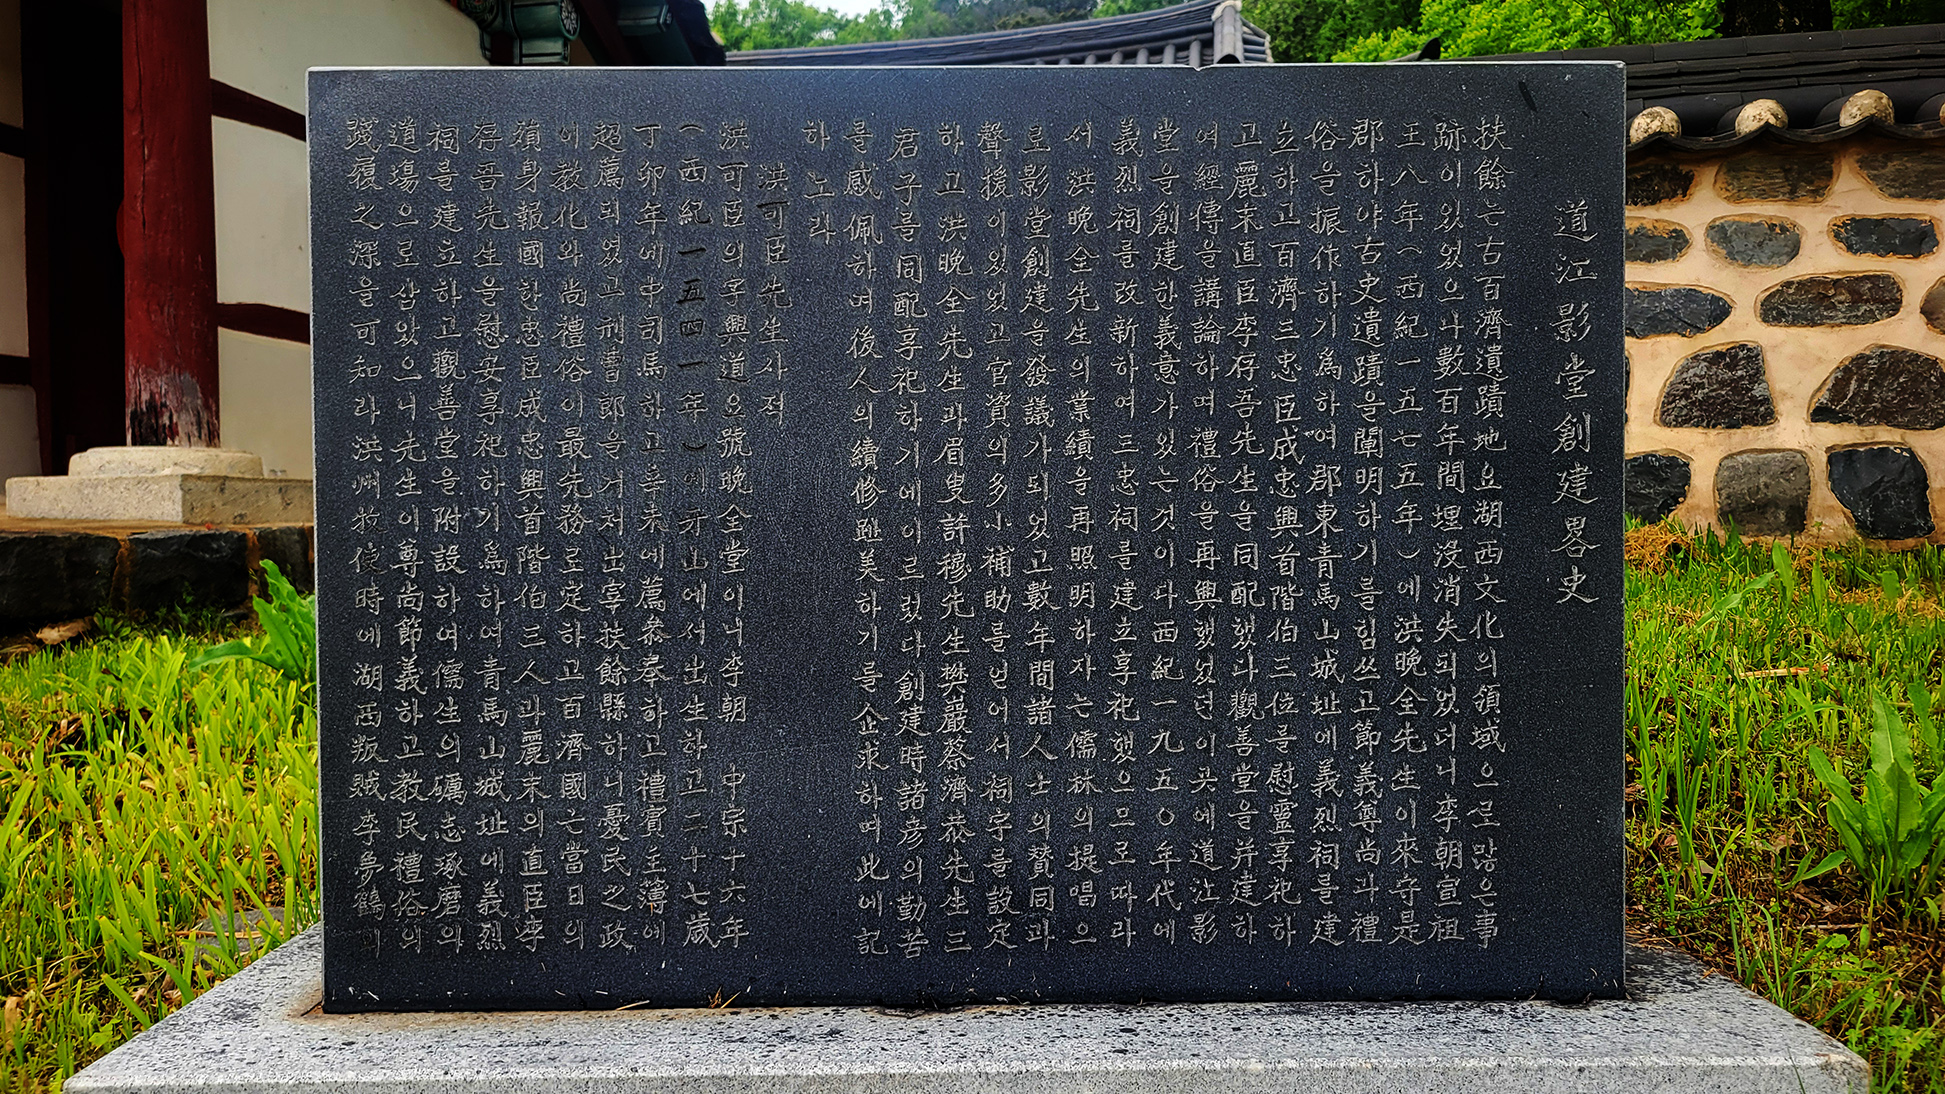 道江影堂創建畧史
扶餘는古百濟遺蹟地요湖西文化의領域으로많은事
跡이있었으나數百年間埋沒消失되었더니李朝宣祖
王八年(西紀一五七五年)에洪晩全先生이來守是
郡하야古史遺蹟을闡明하기를힘쓰고節義尊尙과禮
俗을振作하기爲하여郡東青馬山城址에義烈祠를建
立하고百濟三忠臣成忠興首階伯三位를慰靈享祀하
고麗末直臣李存吾先生을同配했다觀善堂을并建하
여經傳을講論하며禮俗을再興했었던이곳에道江影
堂을創建한義意가있는것이다西紀一九五〇年代에
義烈祠를改新하여三忠祠를建立享祀했으므로따라
서洪晩全先生의業績을再照明하자는儒林의提唱으
로影堂創建을發議가되었고數年間諸人士의賛同과
聲援이있었고官資의多小補助를얻어서祠宇를設定
하고洪晩全先生과眉叟許穆先生樊巖蔡濟恭先生三
君子를同配享祀하기에이르렀다創建時諸彦의勤苦
를感佩하며後人의續修趾美하기를企求하며此에記
하노라
洪可臣先生사적
洪可臣의字興道요號晩全堂이니李朝 中宗十六年
(西紀一五四一年)에牙山에서出生하고二十七歲
丁卯年에中司馬하고辛未에薦叅奉하고禮賓主薄에
超薦되었고刑曹郞을거쳐出宰扶餘縣하니憂民之政
이敎化와尙禮俗이最先務로定하고百濟國는當日의
殞身報國한忠臣成忠興首階伯三人과麗末의直臣李
存吾先生을慰安享祀하기爲하여青馬山城址에義烈
祠를建立하고觀善堂을附設하여儒生의礪志琢磨의
道塲으로삼았으니先生이尊尙節義하고敎民禮俗의
踐履之深을可知라洪州牧使時에湖西叛賊李夢鶴이